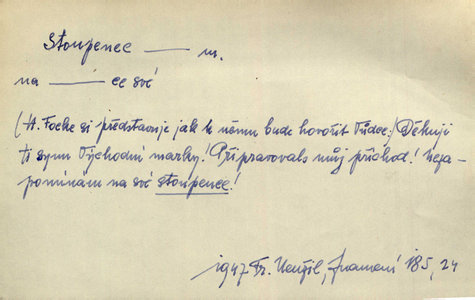 Stoupenec — m.
na — ce své
(H. Focke si představuje jak k němu bude hovořit Vůdce:) Děkuji
ti synu Východní marky! Připravovals můj příchod! Neza-
pomínám na své stoupence!
1947 Fr. Neužil, Znamení 185, 24